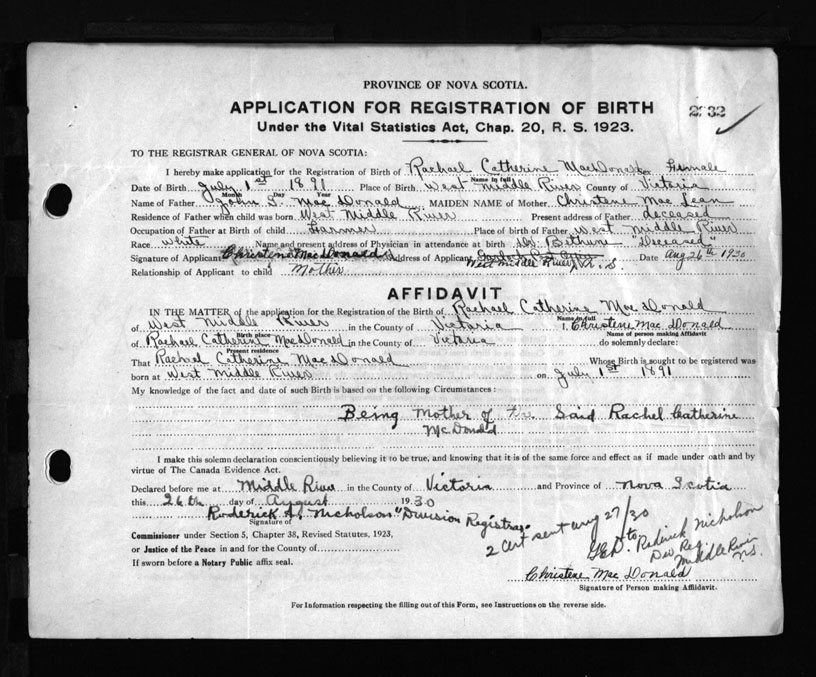 PROVINCE OF NOVA SCOTIA.
APPLICATION FOR REGISTRATION OF BIRTH
Under the Vital Statistics Act, Chap. 20, R. S. 1923.
TO THE REGISTRAR GENERAL OF NOVA SCOTIA:
I hereby make application for the Registration of Birth of Rachael Catherine MacDonald Sex Female
Name in full
Date of Birth July 1st 1891 Place of Birth West Middle River County of Victoria
Month Day Year
Name of Father John Mac Donald MAIDEN NAME of Mother Christene Mac Lean
Residence of Father when child was born West Middle River Present address of Father deceased
Occupation of Father at Birth of child Farmer Place of birth of Father West Middle River
Race White Name and present address of Physician in attendance at birth Dr Bethune "Deceased"
Signature of Applicant Christene MacDonald Address of Applicant West Middle River, N. S. Date Aug 26th 1930
Relationship of Applicant to child Mother
AFFIDAVIT
IN THE MATTER of the application for the Registration of the Birth of Rachael Catherine Mac Donald
Name in full
of West Middle River in the County of Victoria I, Christene Mac Donald
Birth place Name of person making Affidavit
of Rachael Catherine MacDonald in the County of Victoria do solemnly declare:
Present residence
That Rachael Catherine Mac Donald Whose Birth is sought to be registered was
born at West Middle River on July 1st 1891
My knowledge of the fact and date of such Birth is based on the following Circumstances:
Being Mother of The Said Rachel Catherine
McDonald
I make this solemn declaration conscientiously believing it to be true, and knowing that it is of the same force and effect as if made under oath and by
virtue of The Canada Evidence Act.
Declared before me at Middle River in the County of Victoria and Province of Nova Scotia
this 26th day of August 1930
Roderick A. Nicholson "Division Registrar
Signature of
2 Cert sent Aug 27/30
to Roderick Nicholson
Div Reg.
Middle River
N.S.
Commissioner under Section 5, Chapter 38, Revised Statutes, 1923,
or Justice of the Peace in and for the County of
If sworn before a Notary Public affix seal.
Christene Mac Donald
Signature of Person making Affidavit.
For Information respecting the filling out of this Form, see Instructions on the reverse side.